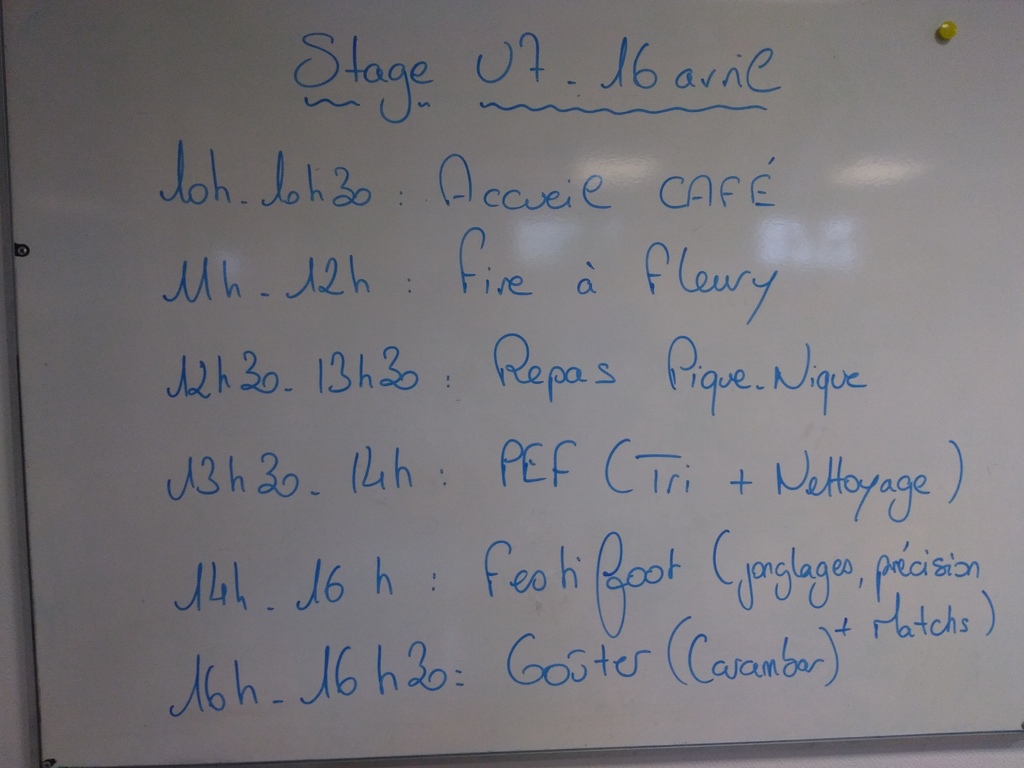 Stage U7 - 16 avril
10h - 10h30 : Accueil CAFÉ
11h - 12h : Five à Fleury
12h30 - 13h30 : Repas Pique-Nique
13h30 - 14h : PEF (Tri + Nettoyage)
14h - 16h : Festifoot (jonglages, précision
+ Matchs)
16h - 16h30 : Goûter (Carambar)